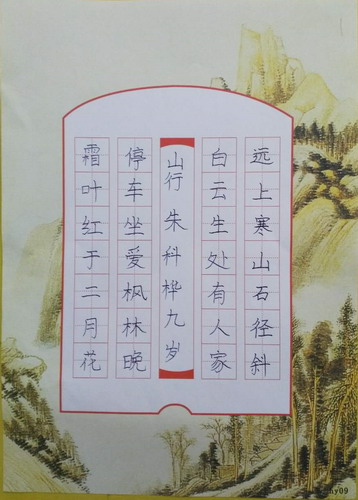 远上寒山石径斜
白云生处有人家
山行 朱科桦九岁
停车坐爱枫林晚
霜叶红于二月花